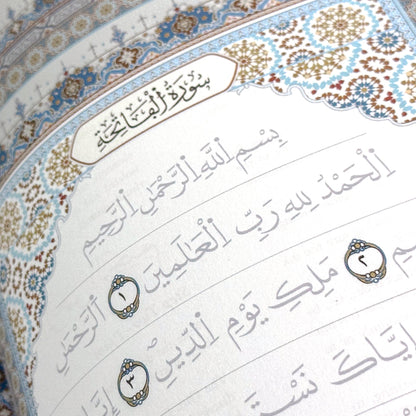 سورة الفاتحة
بِسْمِ اللهِ الرَّحْمٰنِ الرَّحِيمِ
اَلْحَمْدُ لِلهِ رَبِّ الْعَالَمِينَ ١ اَلرَّحْمٰنِ
٢ مَلِكِ يَوْمِ الدِّينِ ٣
اِيَّاكَ